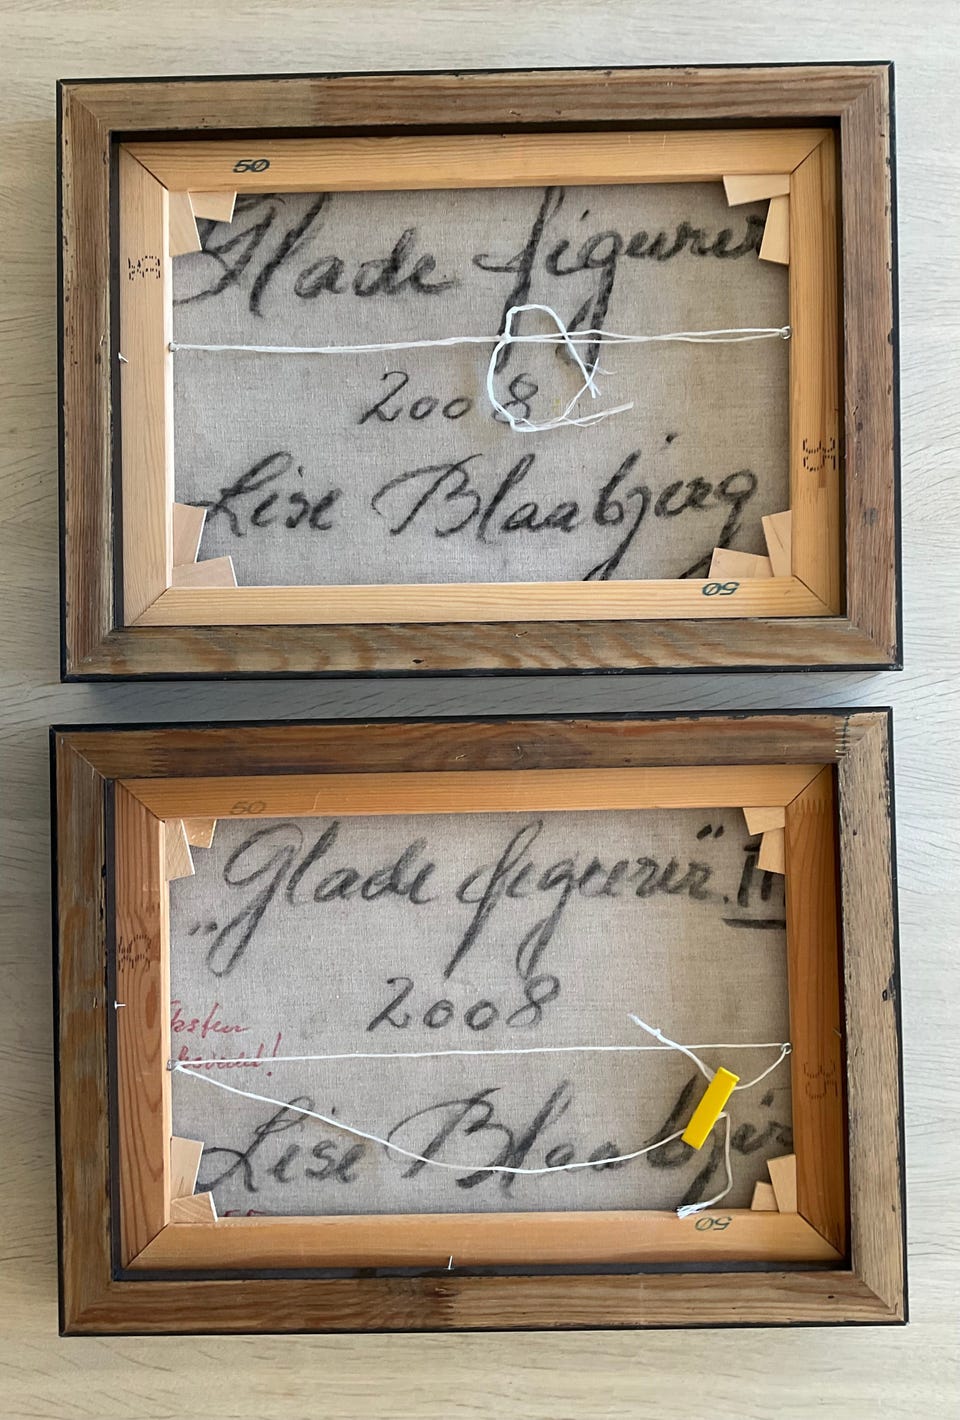 50
Glade figurer
2008
Lise Blaabjerg
50
50
„Glade figurer”. II
2008
Lise Blaabjer
50